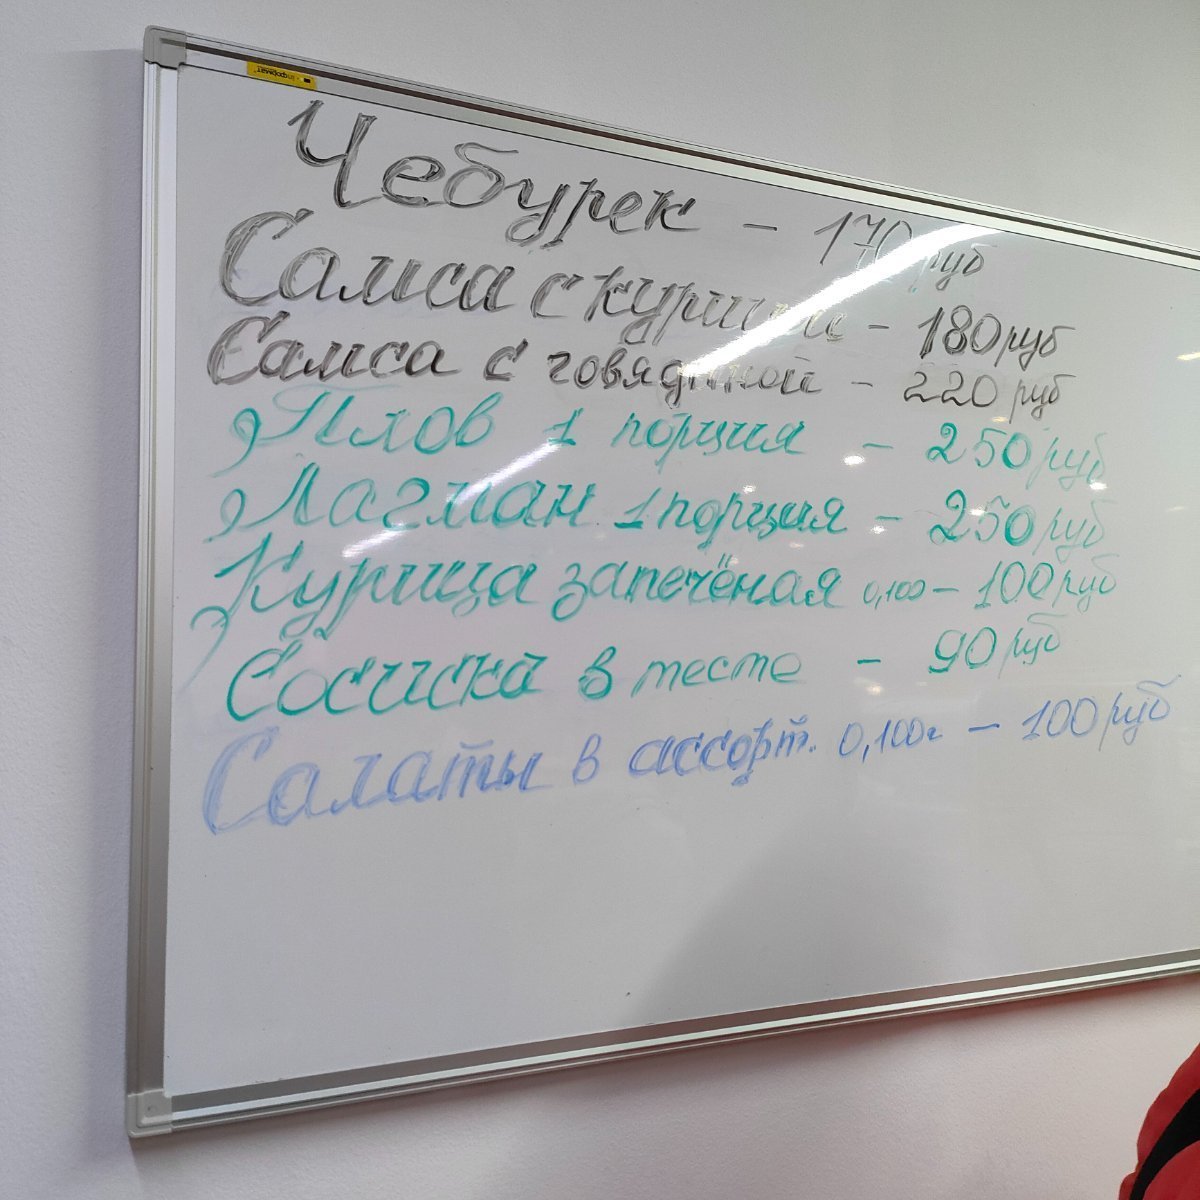 Чебурек - 170 руб
Самса с курицей - 180 руб
Самса с говядиной - 220 руб
Плов 1 порция - 250 руб
Лагман 1 порция - 250 руб
Курица запечёная 0,100 - 100 руб
Сосиска в тесте - 90 руб
Салаты в ассорт. 0,100г - 100 руб